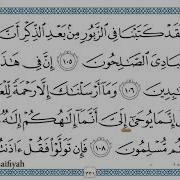 قَدْ كَتَبْنَا فِي ٱلزَّبُورِ مِنۢ بَعْدِ ٱلذِّكْرِ أَنَّ
بَادِيَ ٱلصَّٰلِحُونَ ١٠٥ إِنَّ فِي هَٰذَ
بِدِينَ ١٠٦ وَمَآ أَرْسَلْنَٰكَ إِلَّا رَحْمَةً لِّلْعَ
إِنَّمَا يُوحَىٰٓ إِلَيَّ أَنَّمَآ إِلَٰهُكُمْ إِلَٰهٌ
م مُّسْلِمُونَ ١٠٨ فَإِن تَوَلَّوْا۟ فَقُلْ ءَاذَنتُ
aifiyah
٣٣١